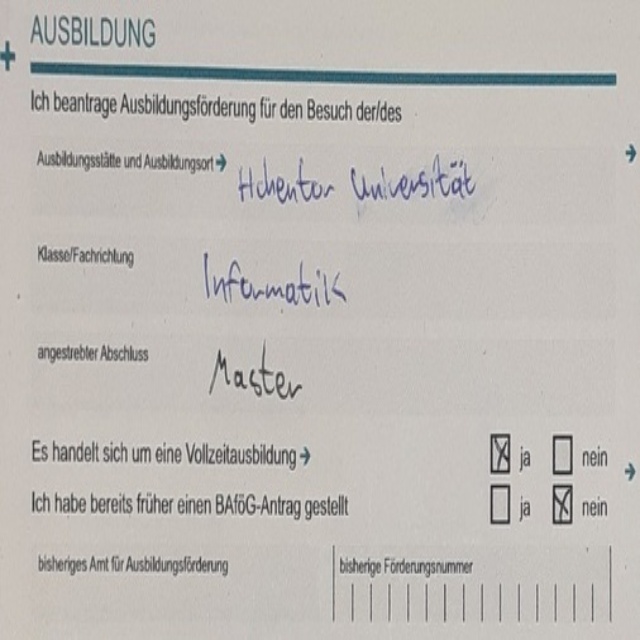 AUSBILDUNG
Ich beantrage Ausbildungsförderung für den Besuch der/des
Ausbildungsstätte und Ausbildungsort → Hohentor Universität
Klasse/Fachrichtung Informatik
angestrebter Abschluss Master
Es handelt sich um eine Vollzeitausbildung → ja nein
Ich habe bereits früher einen BAföG-Antrag gestellt ja nein
bisheriges Amt für Ausbildungsförderung bisherige Förderungsnummer